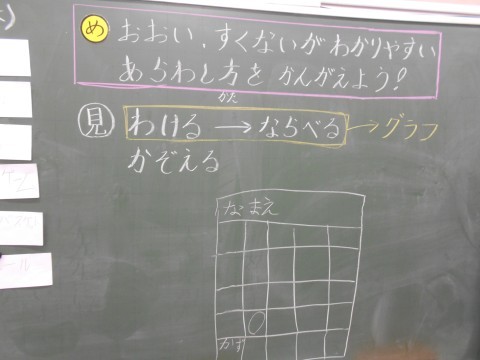 め おおい、すくないが わかりやすい
あらわし方を かんがえよう!
かた
見 わける → ならべる → グラフ
かぞえる
なまえ
かず